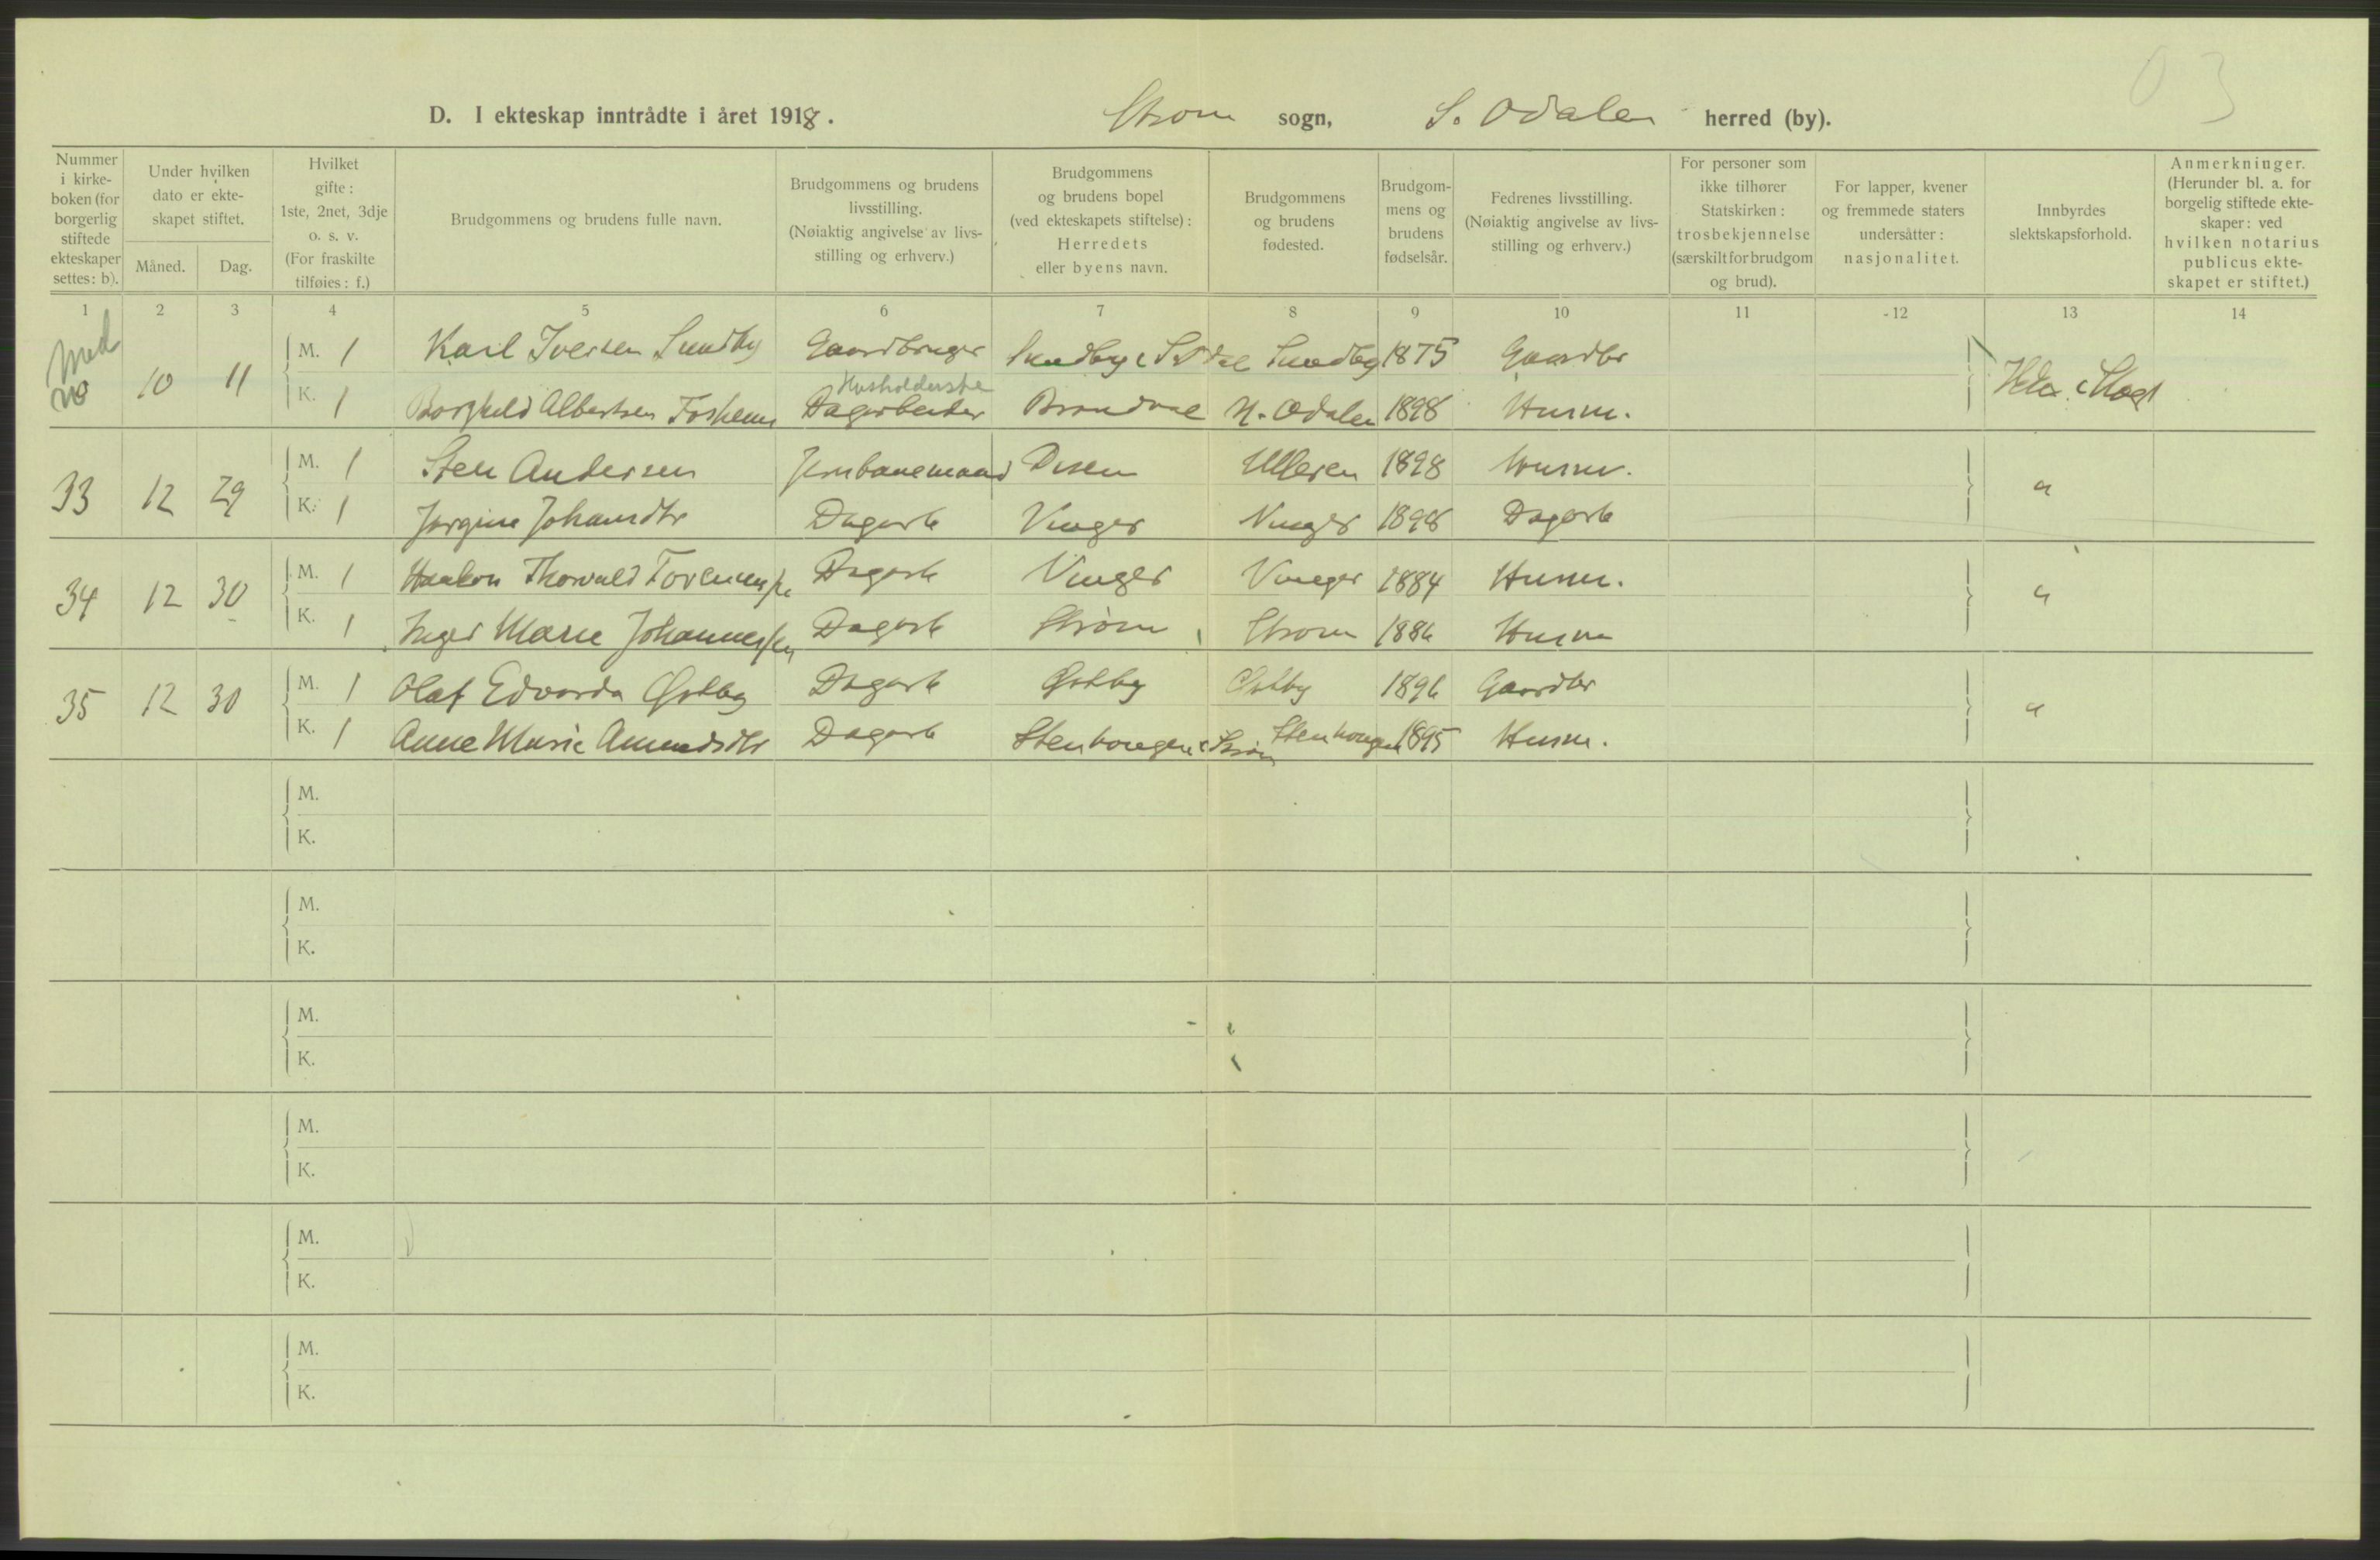 D. I ekteskap inntrådte i året 1918. Strøm sogn, S. Odalen herred (by).
Nummer i kirke- boken (for borgerlig stiftede ekteskaper settes: b).
Under hvilken dato er ekte- skapet stiftet.
Måned.
Dag.
Hvilket gifte: 1ste, 2net, 3dje o. s. v. (For fraskilte tilføies: f.)
Brudgommens og brudens fulle navn.
Brudgommens og brudens livsstilling. (Nøiaktig angivelse av livs- stilling og erhverv.)
Brudgommens og brudens bopel (ved ekteskapets stiftelse): Herredets eller byens navn.
Brudgommens og brudens fødested.
Brudgom- mens og brudens fødselsår.
Fedrenes livsstilling. (Nøiaktig angivelse av livs- stilling og erhverv.)
For personer som ikke tilhører Statskirken: trosbekjennelse (særskilt for brudgom og brud).
For lapper, kvener og fremmede staters undersåtter: nasjonalitet.
Innbyrdes slektskapsforhold.
Anmerkninger. (Herunder bl. a. for borgelig stiftede ekte- skaper: ved hvilken notarius publicus ekte- skapet er stiftet.)
1 2 3 4 5 6 7 8 9 10 11 12 13 14
10 11 M. 1 Karl Iversen Sundby Gaardbruger Sundby i S Odal Sundby 1875 Gaardbr
Husholderske
K. 1 Borghild Albertsen Dagarbeider Brandval N. Odalen 1898 Husm.
33 12 29 M. 1 Sten Andersen Jernbanemand Disen Ulleren 1898 Husm.
"
K. 1 Jørgine Johansdtr Dagarb Vinger Vinger 1898 Dagarb
34 12 30 M. 1 Haakon Thorvald Dagarb Vinger Vinger 1884 Husm.
"
K. 1 Inger Marie Johannessen Dagarb Strøm Strøm 1886 Husm
35 12 30 M. 1 Olaf Edvarda Østby Dagarb Østby Østby 1896 Gaardbr
"
K. 1 Anne Marie Amundsdtr Dagarb Stenhaugen i Strøm Stenhaugen 1895 Husm.
M.
K.
M.
K.
M.
K.
M.
K.
M.
K.
M.
K.